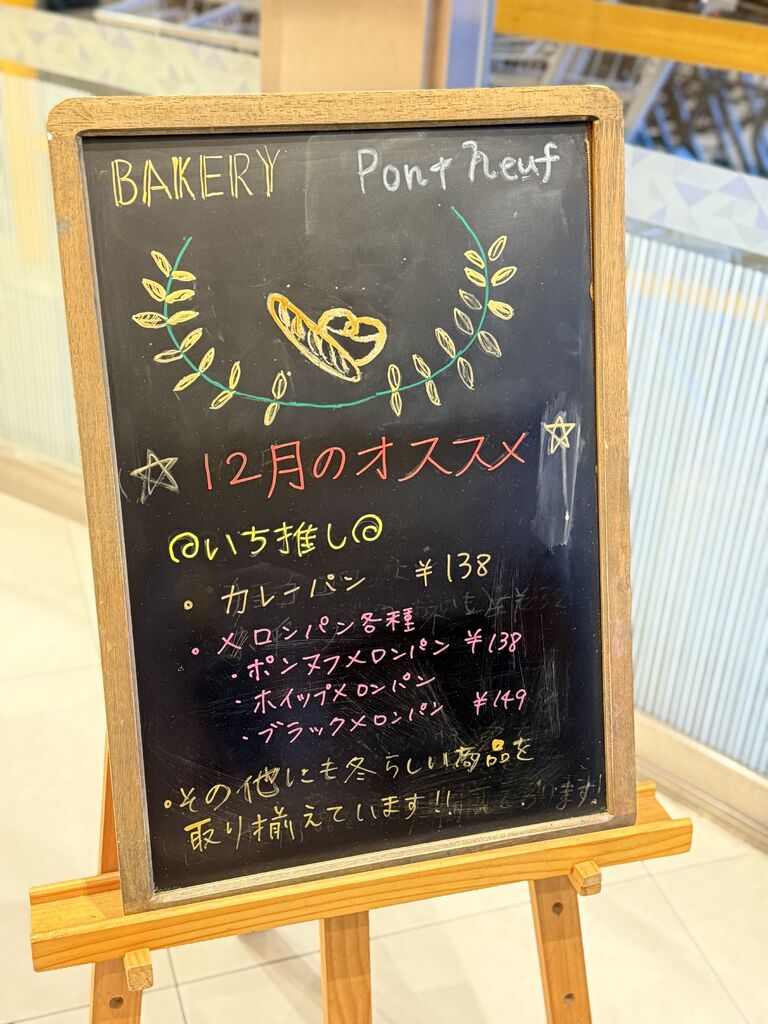 BAKERY Pont Neuf
12月のオススメ
いち推し
・カレーパン ¥138
・メロンパン各種
・ポンヌフメロンパン ¥138
・ホイップメロンパン
・ブラックメロンパン ¥149
・その他にも冬らしい商品を
取り揃えています!!